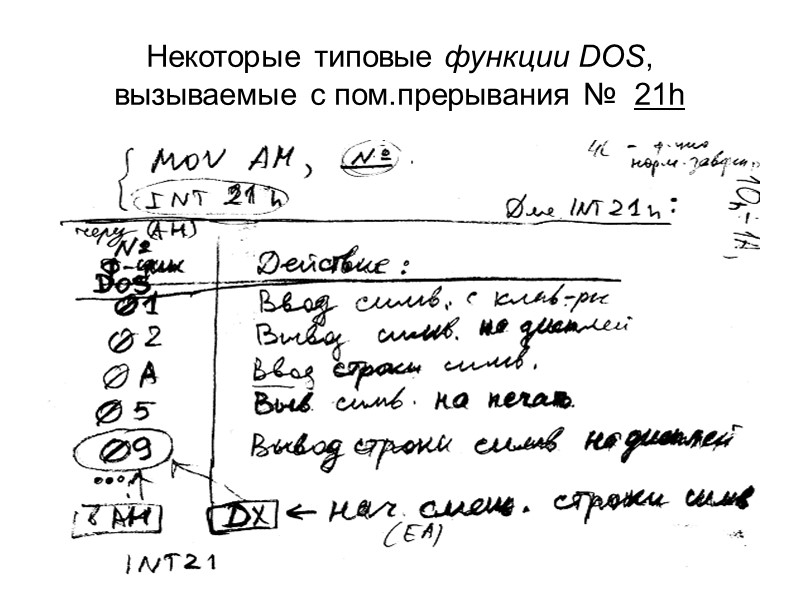 Некоторые типовые функции DOS,
вызываемые с пом.прерывания № 21h
MOV AH, №.
INT 21h
4C - ф-ция
норм. заверш.
Для INT 21h:
через (AH)
№
ф-ции
DOS
Действие:
Ø1 Ввод симв. с клав-ры
Ø2 Вывод симв. на дисплей
ØA Ввод строки симв.
Ø5 Выв симв. на печать
Ø9 Вывод строки симв на дисплей
...
в AH DX ← нач. смещ. строки симв
(EA)
INT21